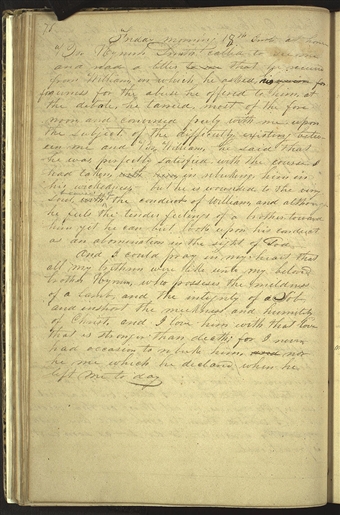 71
Friday morning 18th Inst at home
Bro Hyrum Smith called to see me
and read a letter to me that he received
from William, in which he asked for
giveness for the abuse he offered to him, at
the debate, he tarried, most of the fore
noon and conversed freely with me upon
the subject, of the difficulty existing betw
een me and Bro, William, he said that
he was perfectly satisfied with the course I
had taken, with him in rebuking him in
his wickedness, but he is wounded to the very
soul, with the conduct of William, and although
he feels the tender feelings of a brother, toward
him yet he can but look upon his conduct
as an abomination in the sight of God
And I could pray in my heart that
all my brethren were like unto my beloved
brother Hyrum, who possesses the mildness
of a lamb, and the integrity of a Job,
and in short the meekness and humility
of Christ, and I love him with that love
that is stronger than death; for I never
had occasion to rebuke him, nor
he me which he declared when he
left me to day